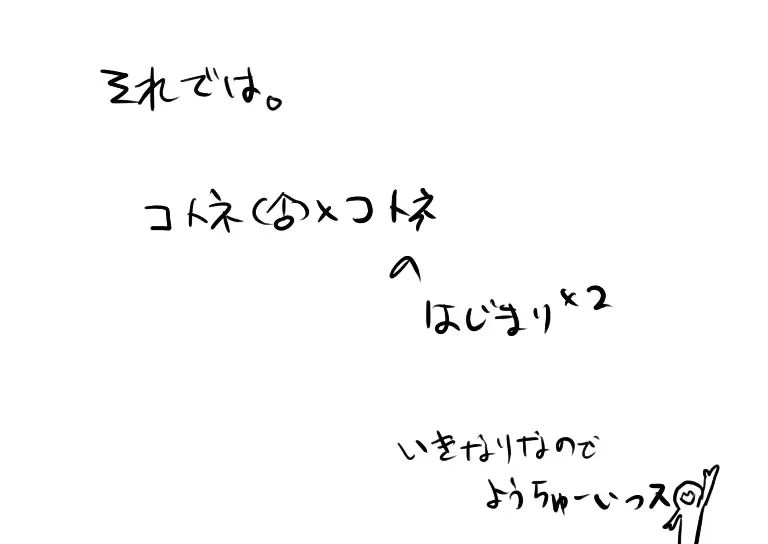 それでは。
コトネ(合)×コトネ
の
はじまり×2
いきなりなので
ようちゅーいっス